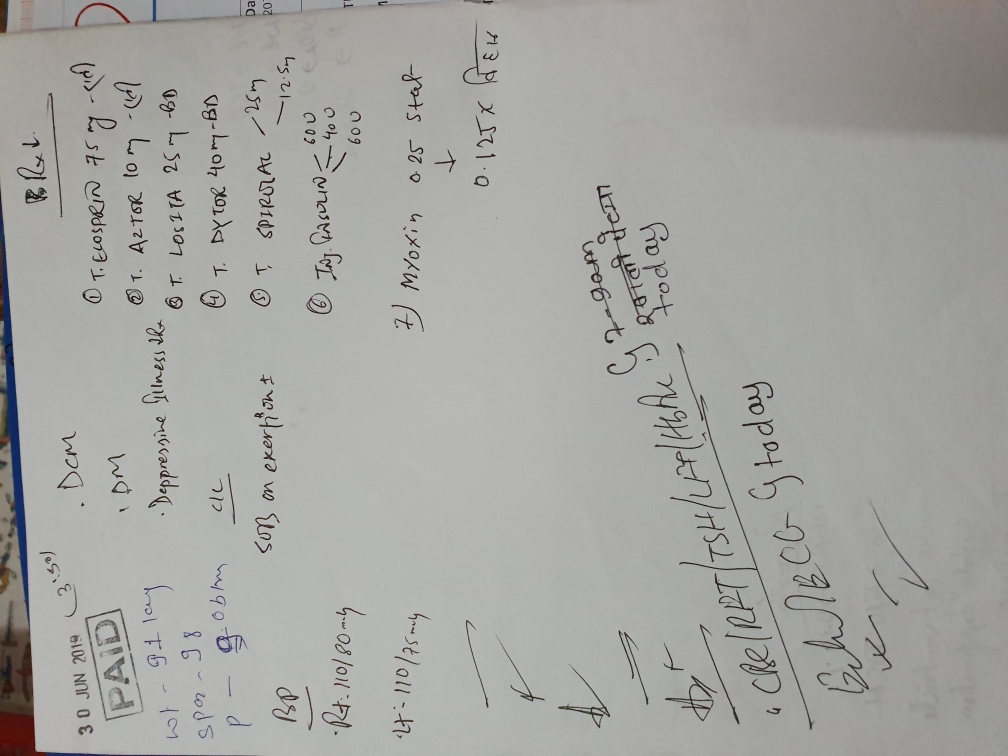 30 JUN 2019 (3:50)
PAID
Wt - 91 kg
SPO2 - 98
P - 90 b/m
BP
Rt - 110/80 mmHg
Lt - 110/75 mmHg
. DCM
. DM
. Deppressive illness
c/c
SOB on exertion ±
Rx
① T. ECOSPRIN 75 mg - (1d)
② T. AZTOR 10 mg - (1d)
③ T. LOSITA 25 mg - BD
④ T. DYTOR 40 mg - BD
⑤ T. SPIROTAC 25 mg
12.5 mg
⑥ Inj. INSULIN 60U
40U
60U
7) Myoxin 0.25 Stat
↓
0.125 x
Adv
CBC/RFT/TSH/LFT/HbA1c
today
Echo/ECG today